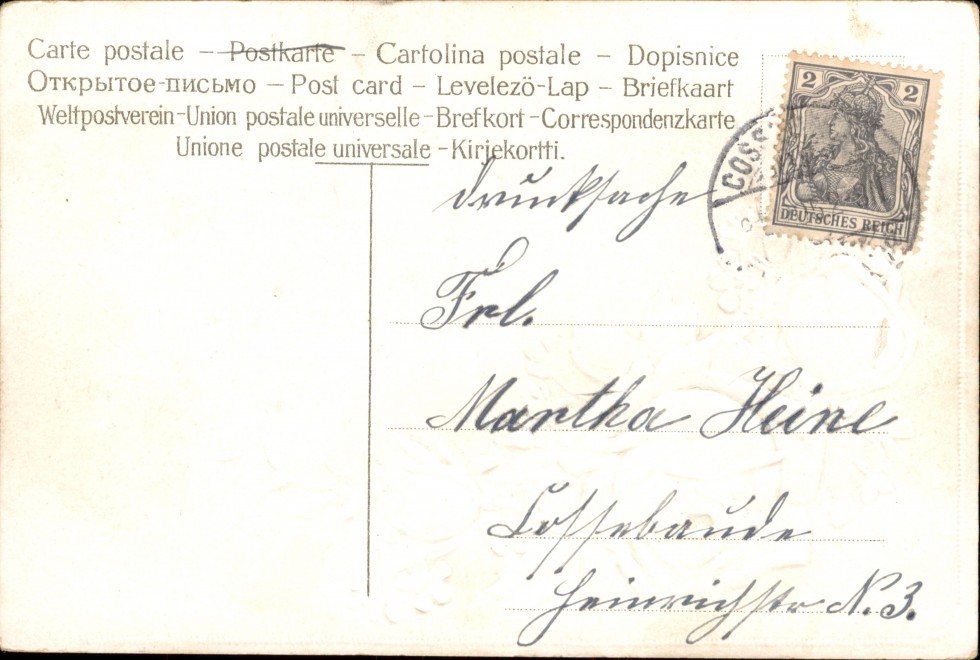 Carte postale – Postkarte – Cartolina postale – Dopisnice
Открытое-письмо – Post card – Levelezö-Lap – Briefkaart
Weltpostverein-Union postale universelle-Brefkort-Correspondenzkarte
Unione postale universale-Kirjekortti.
2 2
DEUTSCHES REICH
COSS
Drucksache
Frl.
Martha Heine
Cossebaude
Heinrichstr N. 3.